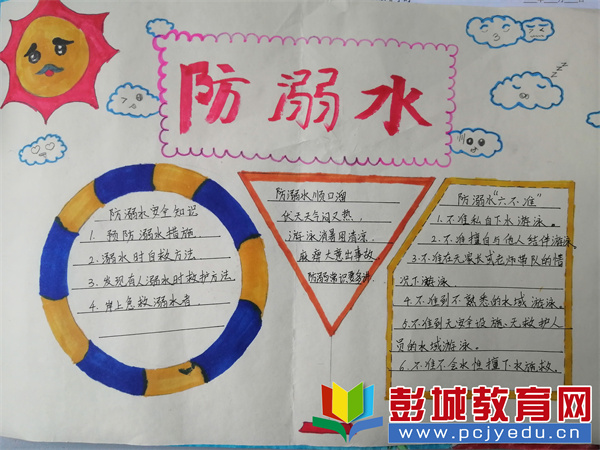 防溺水
防溺水安全知识
1. 预防溺水措施
2. 溺水时自救方法
3. 发现有人溺水时救护方法
4. 岸上急救溺水者
防溺水顺口溜
伏天天气闷又热，
游泳消暑图清凉
麻痹大意出事故
防溺常识要多讲.
防溺"六不准"
1.不准私自下水游泳。
2.不准擅自与他人结伴游泳
3.不准在无家长或老师带队的情
况下游泳.
4.不准到不熟悉的水域游泳.
5.不准到无安全设施、无救护人
员的水域游泳。
6.不准不会水性擅下水施救.
彭城教育网
www.pcjyedu.cn